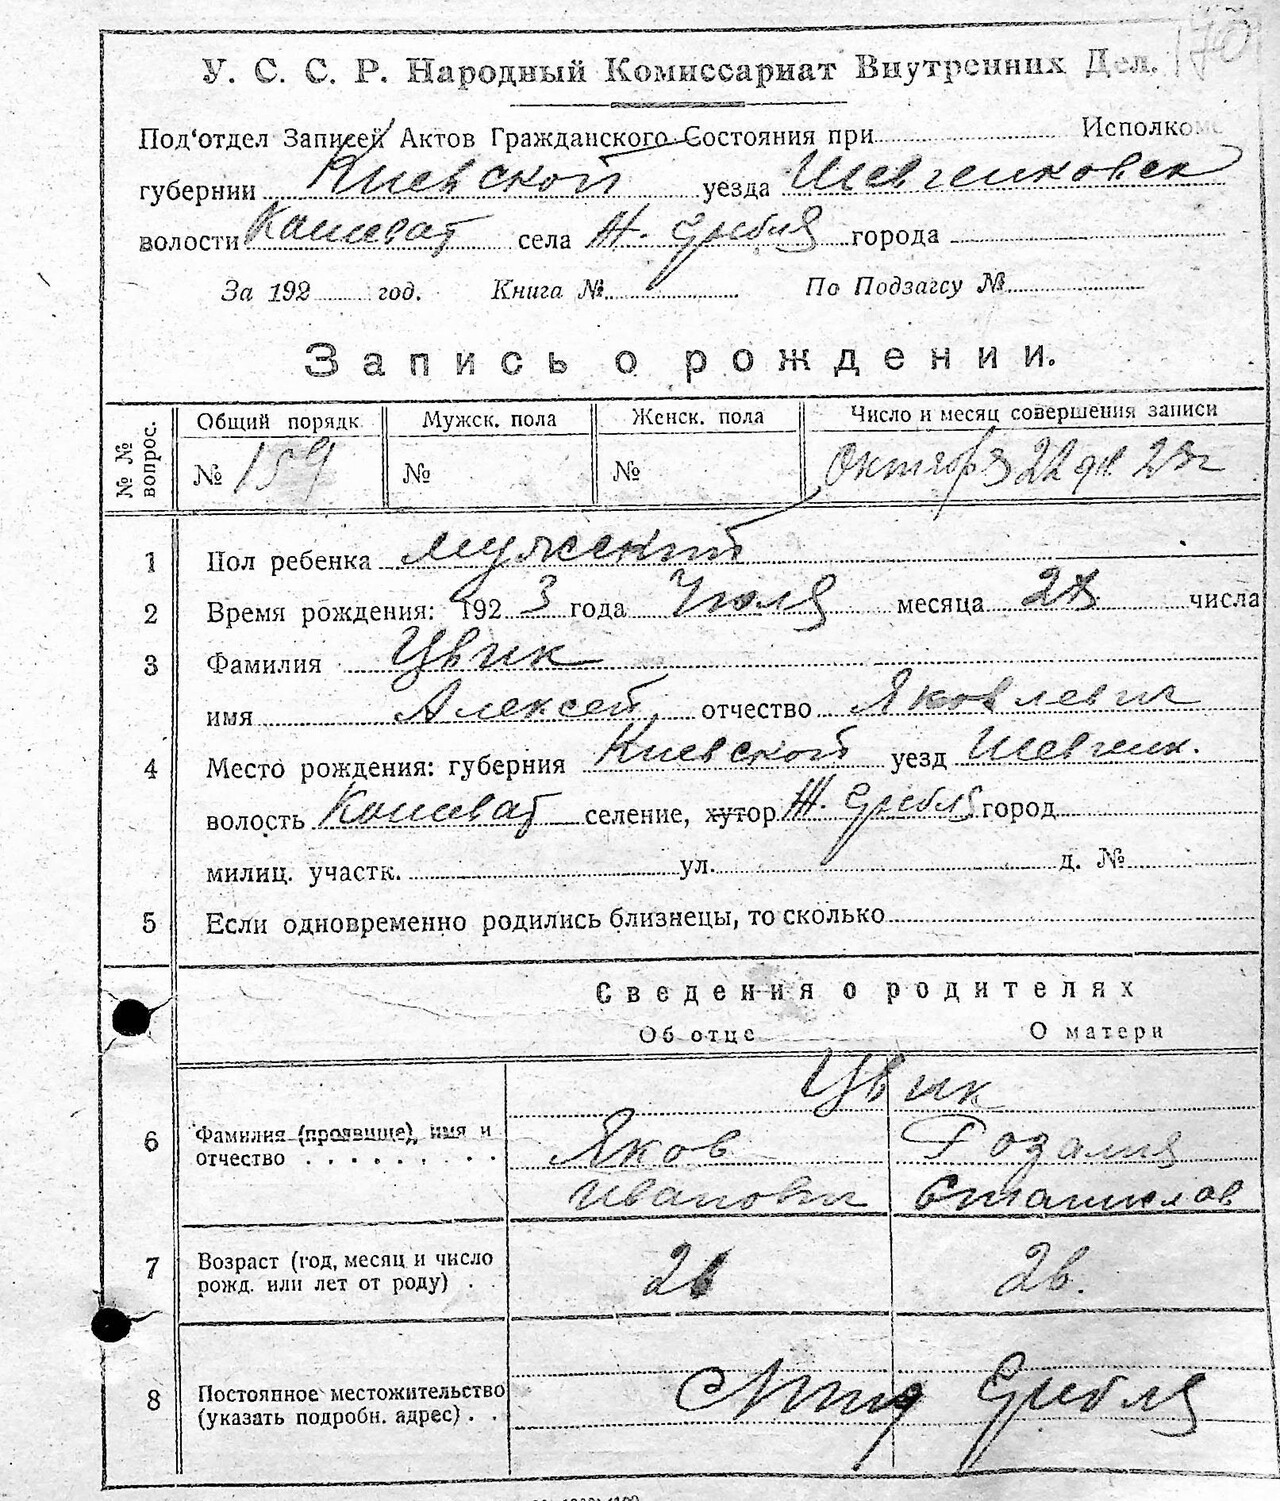 У. С. С. Р. Народный Комиссариат Внутренних Дел.
Под'отдел Записей Актов Гражданского Состояния при Исполком
губернии Киевской уезда Шевченковск
волости Кошеват села Ж. Гребля города
За 192 год. Книга № По Подзагсу №
Запись о рождении.
№ № вопрос. Общий порядк Мужск. пола Женск. пола Число и месяц совершения записи
№ 159 № № Октября 22 дн 23г
1 Пол ребенка мужский
2 Время рождения: 1923 года Июля месяца числа
3 Фамилия Цвик
имя Алексей отчество Яковлевич
4 Место рождения: губерния Киевской уезд Шевченк.
волость Кошеват селение, хутор Ж. Гребля город
милиц. участк. ул. д. №
5 Если одновременно родились близнецы, то сколько
Сведения о родителях
Об отце О матери
Цвик
6 Фамилия (прозвище), имя и отчество Яков Розалия
Иванович Станислав
7 Возраст (год, месяц и число рожд. или лет от роду)
8 Постоянное местожительство (указать подробн. адрес) Гребля